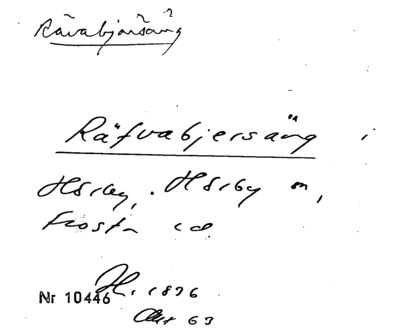 Rävabjärsäng
Räfvabjersäng i
Hörby, Hörby sn,
Frosta hd
H. 1836
Nr 10446
Akt 63